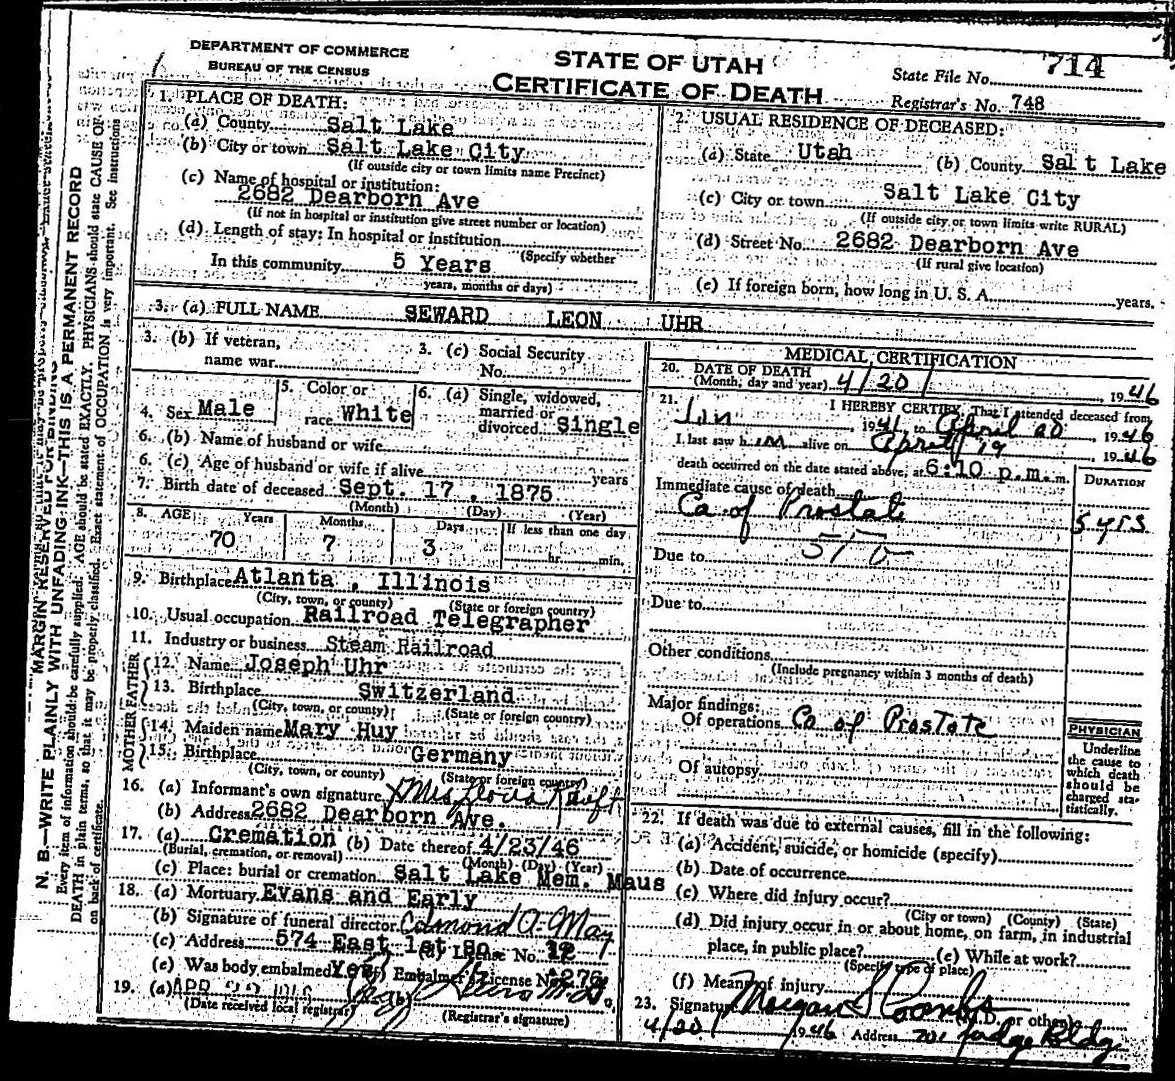 DEPARTMENT OF COMMERCE
BUREAU OF THE CENSUS
STATE OF UTAH
CERTIFICATE OF DEATH
State File No. 714
Registrar's No. 748
MARGIN RESERVED FOR BINDING
N. B.—WRITE PLAINLY WITH UNFADING INK—THIS IS A PERMANENT RECORD
Every item of information should be carefully supplied. AGE should be stated EXACTLY. PHYSICIANS should state CAUSE OF
DEATH in plain terms, so that it may be properly classified. Exact statement of OCCUPATION is very important. See instructions
on back of certificate.
1. PLACE OF DEATH:
(a) County Salt Lake
(b) City or town Salt Lake City
(If outside city or town limits name Precinct)
(c) Name of hospital or institution:
2682 Dearborn Ave
(If not in hospital or institution give street number or location)
(d) Length of stay: In hospital or institution
(Specify whether
In this community 5 Years
years, months or days)
2. USUAL RESIDENCE OF DECEASED:
(a) State Utah (b) County Salt Lake
(c) City or town Salt Lake City
(If outside city or town limits write RURAL)
(d) Street No. 2682 Dearborn Ave
(If rural give location)
(e) If foreign born, how long in U. S. A. years.
3. (a) FULL NAME SEWARD LEON UHR
3. (b) If veteran, name war
3. (c) Social Security No.
4. Sex Male
5. Color or race White
6. (a) Single, widowed, married or divorced Single
6. (b) Name of husband or wife
6. (c) Age of husband or wife if alive years
7. Birth date of deceased Sept. 17, 1875
(Month) (Day) (Year)
8. AGE Years Months Days If less than one day
70 7 3 hr. min.
9. Birthplace Atlanta, Illinois
(City, town, or county) (State or foreign country)
10. Usual occupation Railroad Telegrapher
11. Industry or business Steam Railroad
FATHER
12. Name Joseph Uhr
13. Birthplace Switzerland
(City, town, or county) (State or foreign country)
MOTHER
14. Maiden name Mary Huy
15. Birthplace Germany
(City, town, or county) (State or foreign country)
16. (a) Informant's own signature Mrs
(b) Address 2682 Dearborn Ave.
17. (a) Cremation (b) Date thereof 4/23/46
(Burial, cremation, or removal) (Month) (Day) (Year)
(c) Place: burial or cremation Salt Lake Mem. Maus
18. (a) Mortuary Evans and Early
(b) Signature of funeral director Edmond A. May
(c) Address 574 East 1st So (d) License No. 12
(e) Was body embalmed Yes (f) Embalmer's License No. 276
19. (a) APR (b)
(Date received local registrar) (Registrar's signature)
MEDICAL CERTIFICATION
20. DATE OF DEATH
(Month, day and year) 4/20/, 1946
21. I HEREBY CERTIFY, That I attended deceased from
Jan 1941 to April 20, 1946
I last saw him alive on April 19, 1946
death occurred on the date stated above, at 6:10 p.m. m.
DURATION
Immediate cause of death
Ca of Prostate 5 yrs.
Due to
Due to
Other conditions
(Include pregnancy within 3 months of death)
Major findings:
Of operations Ca of Prostate
Of autopsy
PHYSICIAN
Underline
the cause to
which death
should be
charged sta-
tistically.
22. If death was due to external causes, fill in the following:
(a) Accident, suicide, or homicide (specify)
(b) Date of occurrence
(c) Where did injury occur?
(City or town) (County) (State)
(d) Did injury occur in or about home, on farm, in industrial
place, in public place? (e) While at work?
(Specify type of place)
(f) Means of injury
23. Signature Morgan S Coombs
(M.D. or other)
4/20/ 1946 Address 701 Judge Bldg